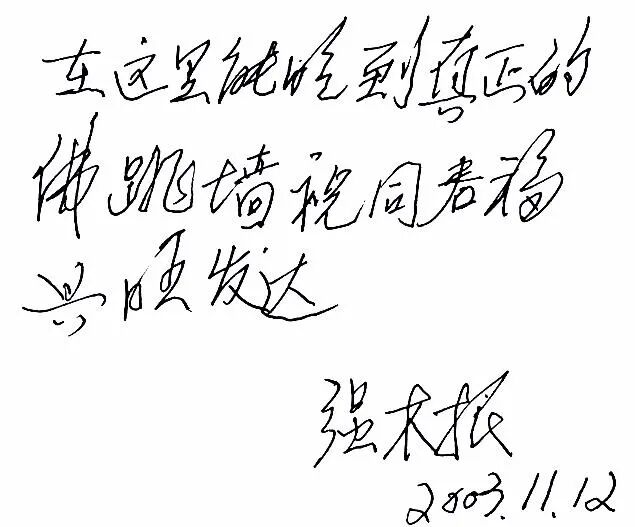 在这里能吃到真正的
佛跳墙祝同春福
兴旺发达
强木振
2003.11.12